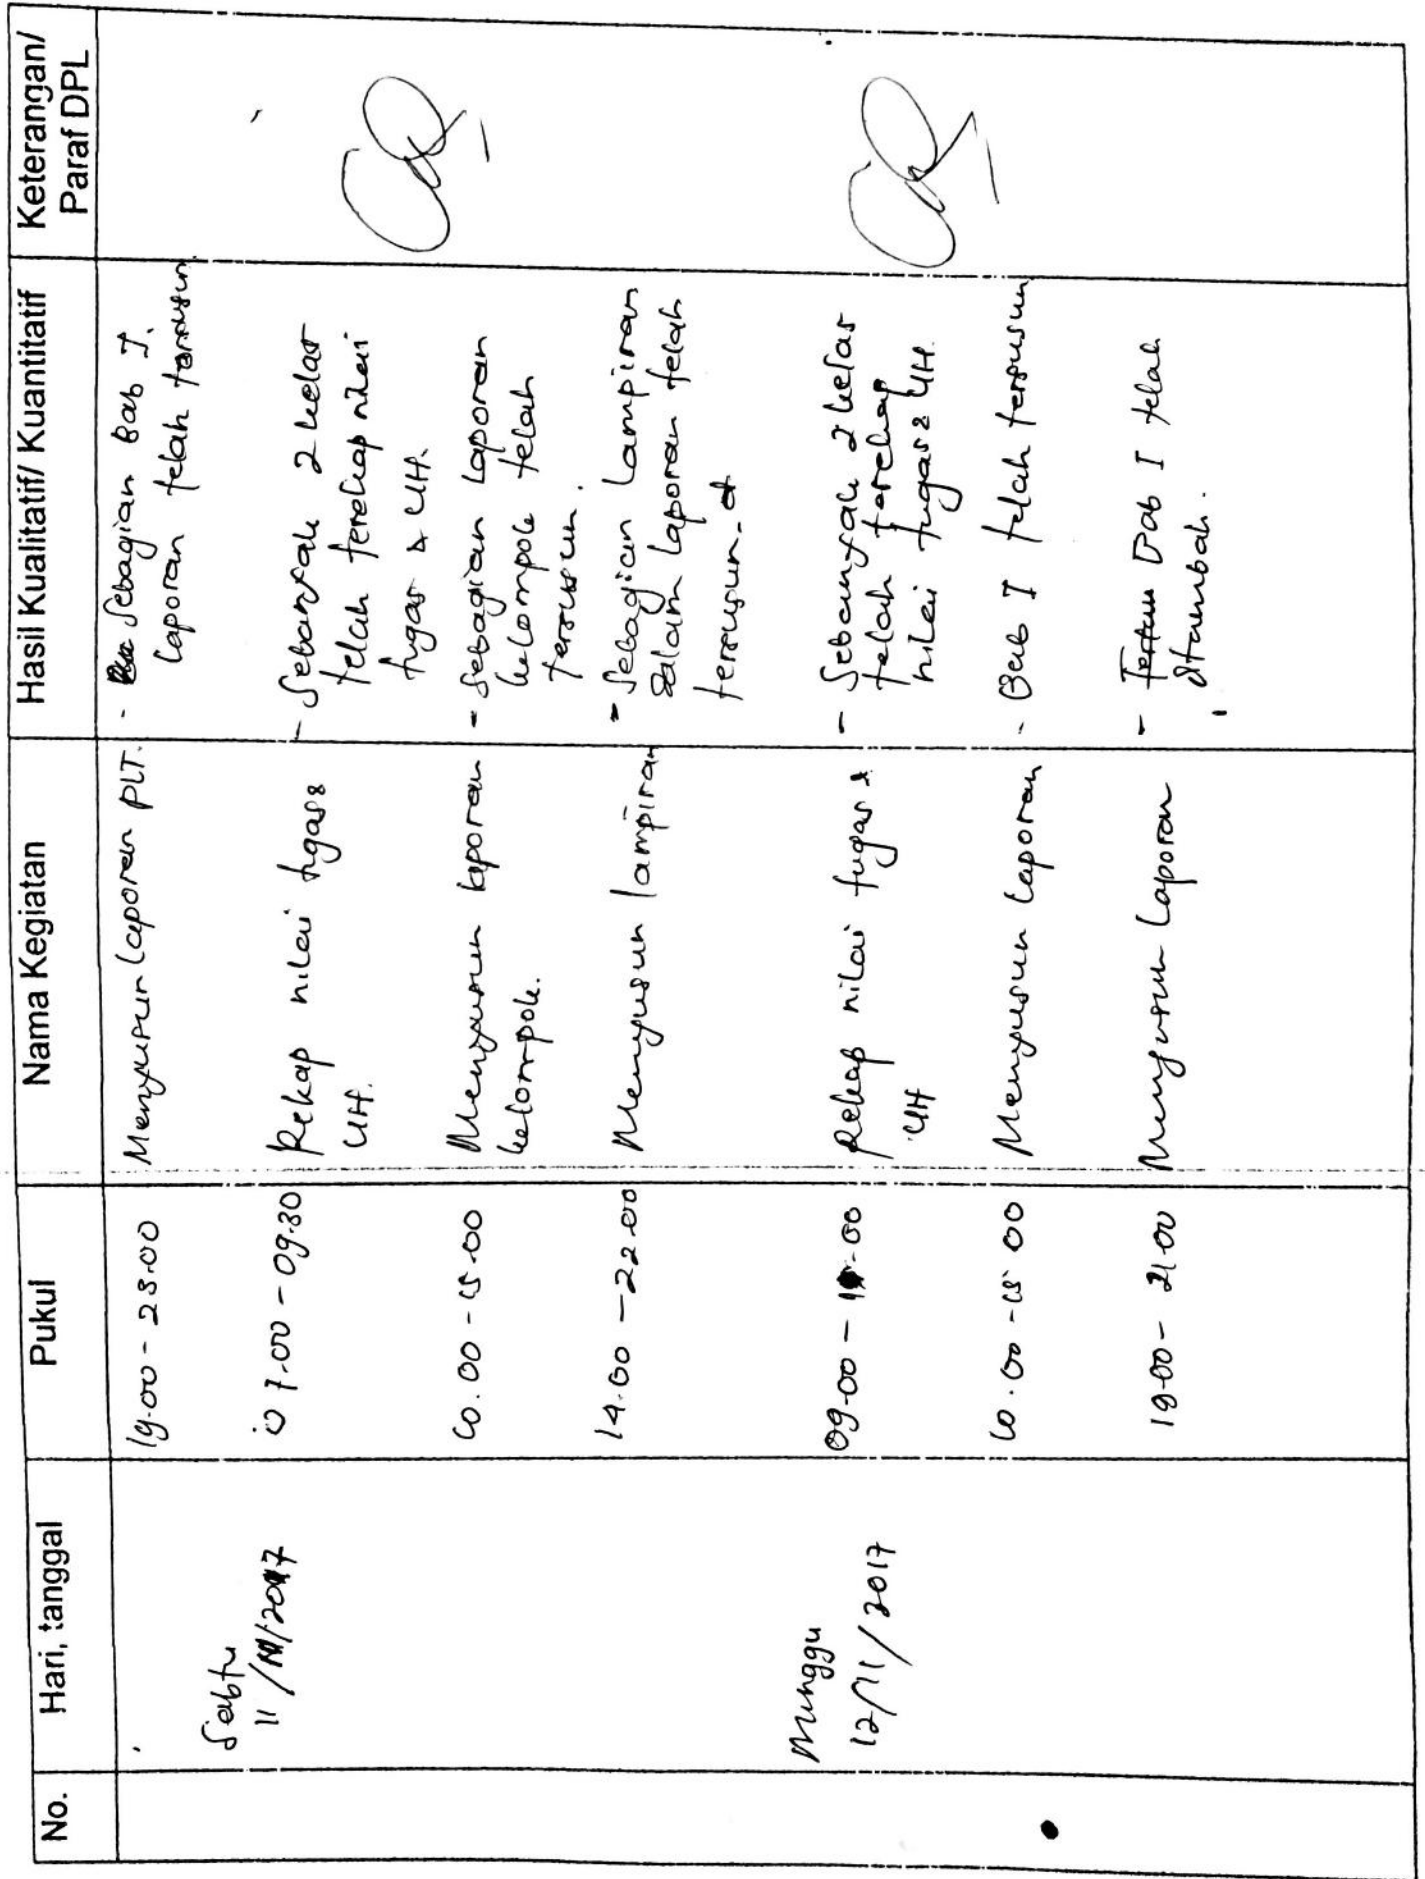 No.
Hari, tanggal
Pukul
Nama Kegiatan
Hasil Kualitatif/ Kuantitatif
Keterangan/
Paraf DPL
19.00 - 23.00
Menyusun laporan PLT.
- Sebagian Bab I.
laporan telah tersusun
Sabtu
11/11/2017
07.00 - 09.30
Rekap nilai tugas &
UH.
- Sebanyak 2 kelas
telah terekap nilai
tugas & UH.
10.00 - 15.00
Menyusun laporan
kelompok.
- Sebagian laporan
kelompok telah
tersusun.
14.00 - 22.00
Menyusun lampiran
- Sebagian lampiran
dalam laporan telah
tersusun.
Minggu
12/11/2017
09.00 - .00
Rekap nilai tugas &
UH
- Sebanyak 2 kelas
telah terekap
nilai tugas & UH.
10.00 - 15.00
Menyusun laporan
- Bab I telah tersusun
19.00 - 21.00
Menyusun laporan
- Bab I telah
ditambah.